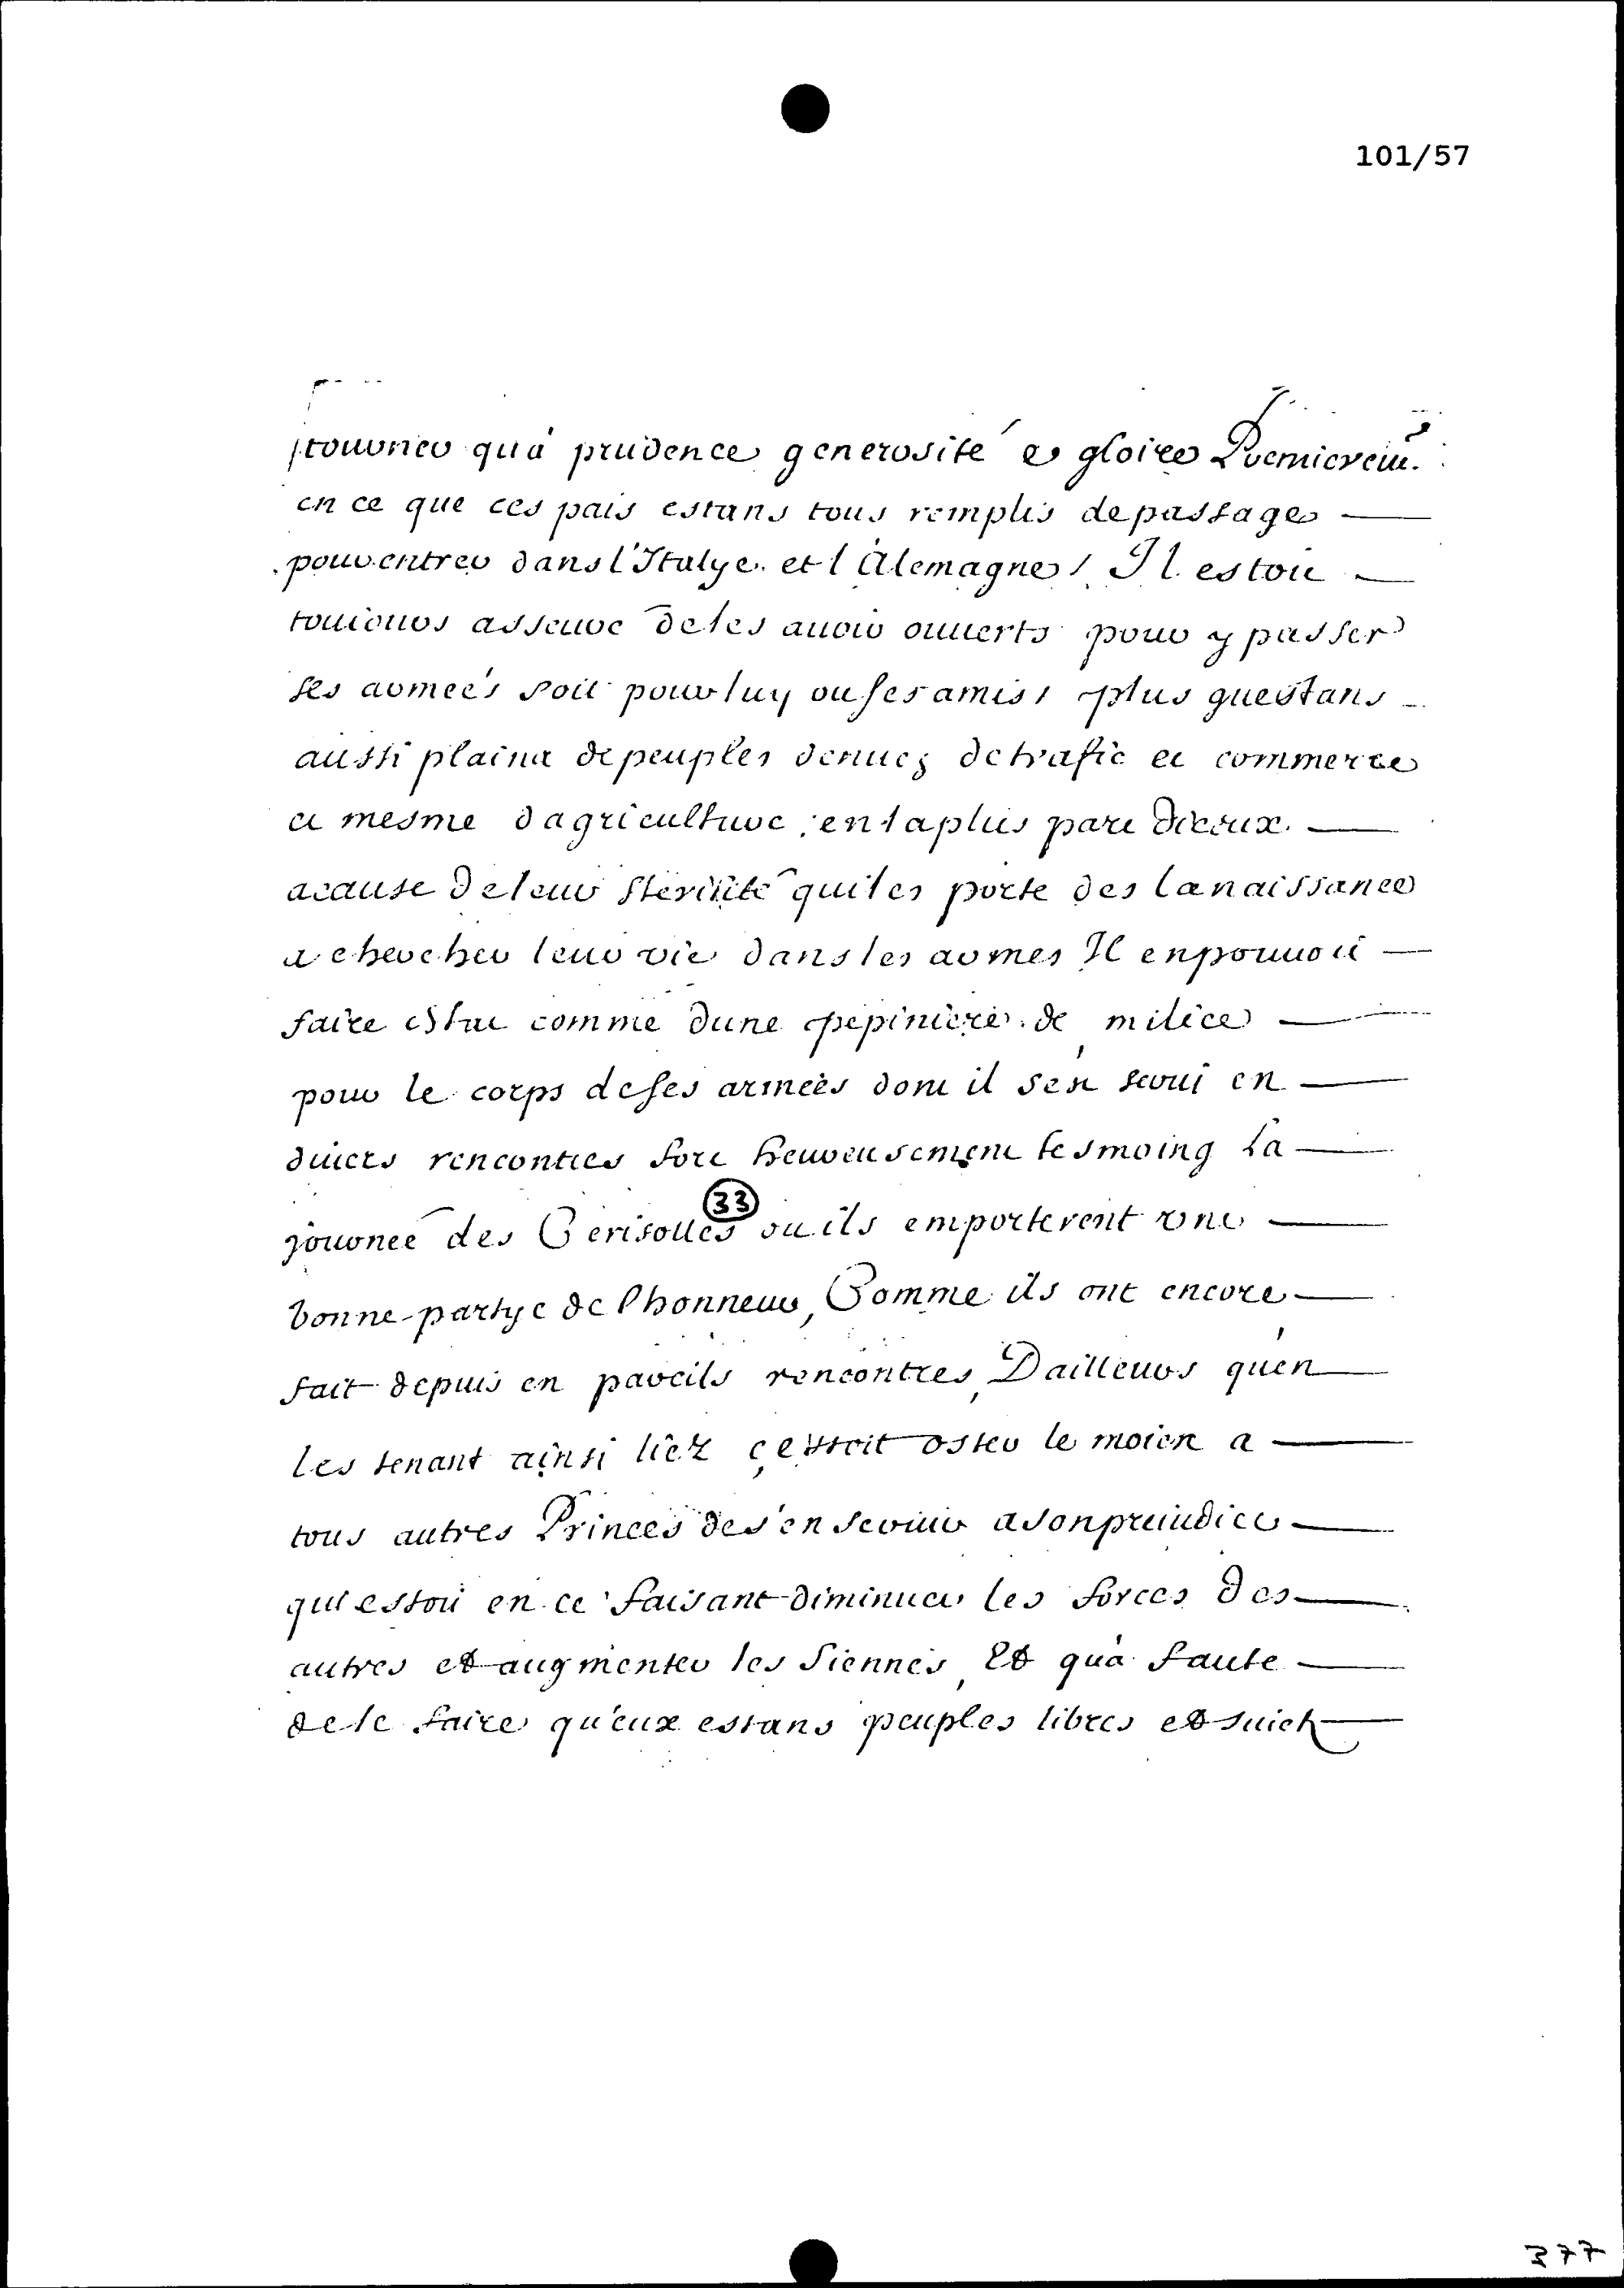 101/57
tourner qu'a prudence generosité et gloire Premierem.
en ce que ces pais estans tous remplis de passages
pour entrer dans l'Italye et l'Alemagne, Il estoit
touiours asseure de les auoir ouuerts pour y passer
ses armeés soit pour luy ou ses amis, plus questans
aussi plains de peuples denuez de trafic et commerce
et mesme dagriculture, en la plus part diceux
a cause de leur sterilité qui les porte des la naissance
a chercher leur vie dans les armes Il en pouuoit
faire estat comme dune pepiniere de milice
pour le corps de ses armeés dont il s'est serui en
diuers rencontres fort heureusement tesmoing la
journeé des Cerisolles 33 ou ils emporterent une
bonne partye de l'honneur, Comme ils ont encore
fait depuis en pareils rencontres, Dailleurs qu'en
les tenant ainsi liéz c'estoit oster le moien a
tous autres Princes de s'en seruir a son preiudice
qui estoit en ce faisant diminuer les forces des
autres et augmenter les siennes, Et qu'a faute
de le faire qu'eux estans peuples libres et suiets
377